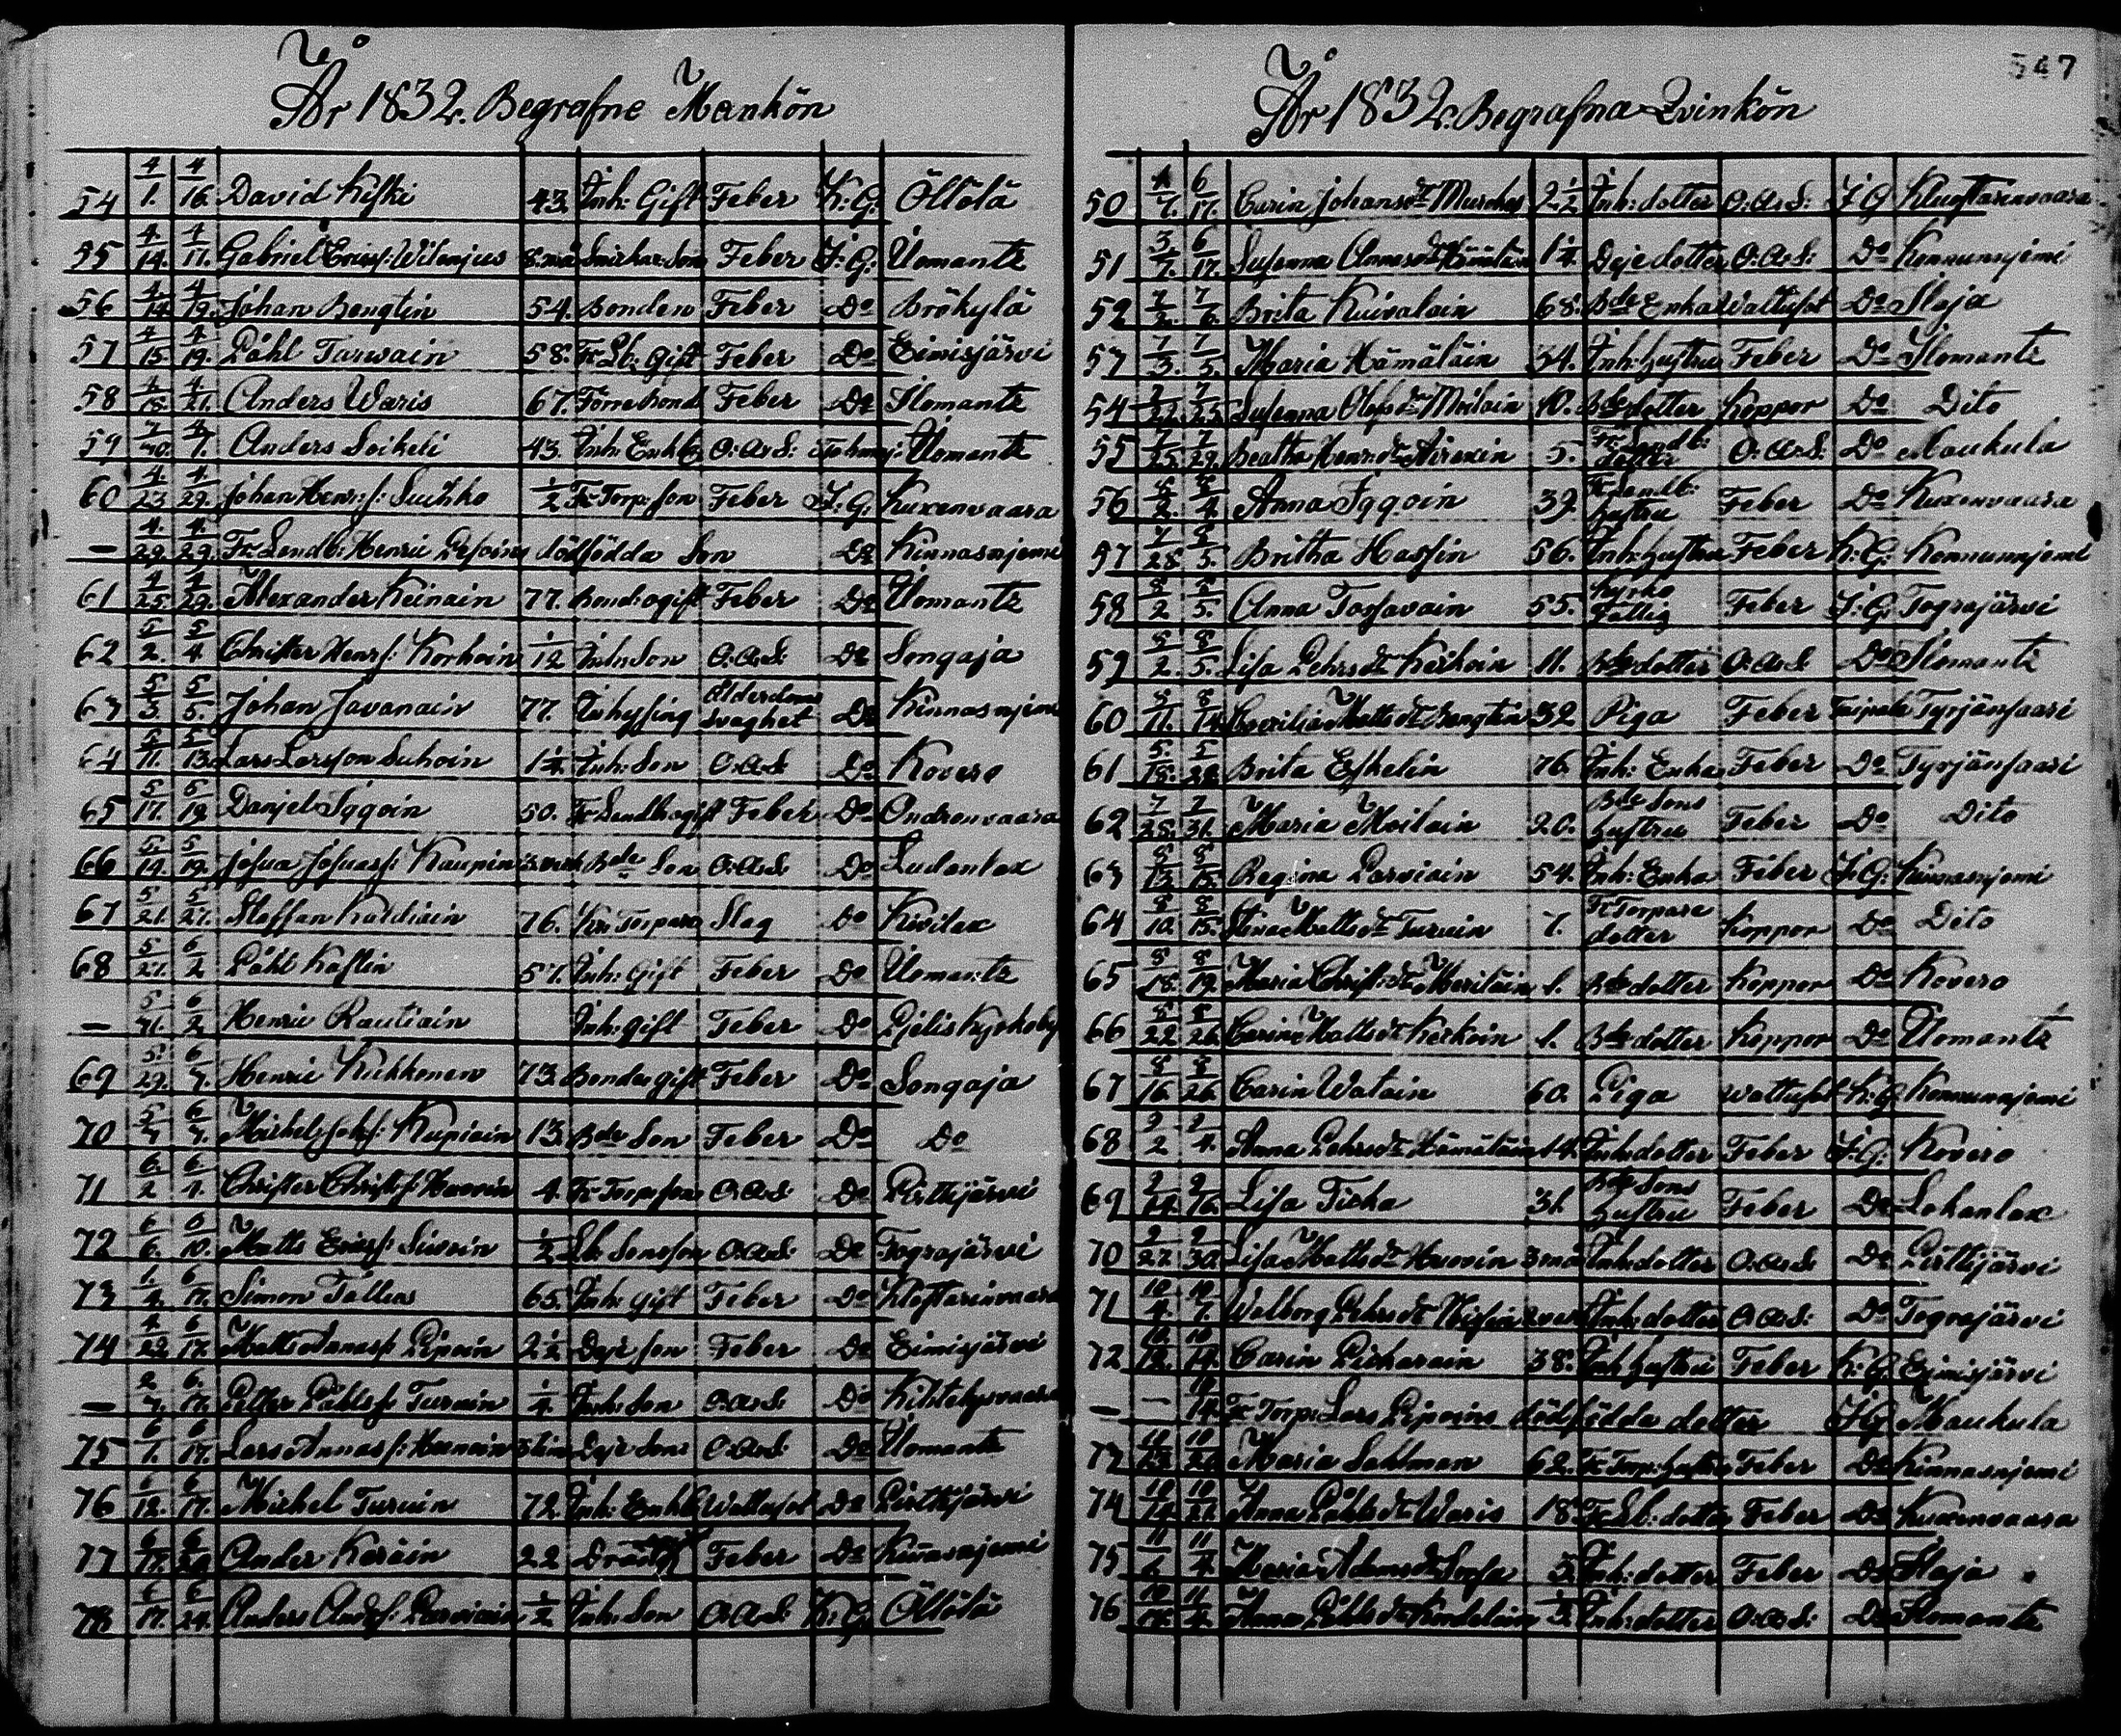 År 1832. Begrafne Mankön
54 4/1. 4/16. David Kiski 43. Inh: Gift Feber K: G: Öllölä
55 4/14. 4/17. Gabriel Ericss: Wilenjus 8. mån Feber I: G: Ilomants
56 4/14. 4/19. Johan Bengtin 54. Bonden Feber Do Brökylä
57 4/15. 4/19. Påhl Tarwain 58. Fr: Lb: Gift Feber Do Eimisjärvi
58 4/18. 4/21. Anders Waris 67. Förre bond Feber Do Ilomants
59 Anders Soikeli 43. Inh: Enkl: O: A: S: Ilomants
60 4/23. 4/29. Johan Henr: s: Suihko 1/2 Fr: Torp: son Feber I: G: Kuxenvaara
— 4/29. 4/29. Fr: Landb: Henric dödfödda Son Do Kinnasnjemi
61 4/25. 4/29. Alexander Keinain 77. Bond: ogift Feber Do Ilomants
62 5/2. 5/4. Christer Henrs: Korhoin 1/12 Inh: Son O: A: S: Do Songaja
63 5/3. 5/5. Johan Javanain 77. Inhysing Ålderdoms svaghet Do Kinnasnjemi
64 5/11. 5/13. Lars Larsson Suhoin 1 1/4. Inh: Son O: A: S: Do Kovero
65 5/17. 5/19. Danjel Iggoin 50. Fr: Landb: ogift Feber Do Andronvaara
66 5/14. 5/19. Josua Josuass: Kaupin Bde Son O: A: S: Do Ludonlax
67 5/21. 5/27. Staffan 76. Kr: Torpare Slag Do Kivilax
68 5/27. 6/2 Påhl Kastin 57. Inh: Gift Feber Do Ilomants
— 5/31. 6/2. Henric Rautiain Inh: gift Feber Do Pjelis Kyrkoby
69 5/29. 6/7. Henric Kukkonen 73. Bonde: gift Feber Do Songaja
70 Michel Kupiain 13. Bde Son Feber Do Do
71 6/2 6/4. Christer Christ: s: Huovin 4. Fr: Torp: son O: A: S: Do Pirttijärvi
72 6/6. 6/10. Matts Ericss: Sivoin 1/2 Lb: Sonsson O: A: S: Do Tograjärvi
73 1/4. 6/17. Simon Tallus 65. Inh: gift Feber Do
74 4/22. 6/17. Matts Annass: Piipoin 2 1/2 Deje son Feber Do Eimisjärvi
— 2/7. 6/17. Petter Påhlss: Turuin 1/4 Inh: Son O: A: S: Do Kihtelysvaara
75 6/1. 6/17. Lars Annass: Deje Sons O: A: S: Do Ilomants
76 6/12. 6/17. Michel Turuin 72. Inh: Enkl: Wattusot Do Pirttijärvi
77 Ander Keräin 22 Dräng Feber Do Kinnasnjemi
78 6/17. 6/24. Anders Anders: Parviain 1/2 Inh: Son O: A: S: K: G: Öllölä
547
År 1832. Begrafna Qvinkön
50 6/17. Carin Johansdr 2 1/2 Inh: dotter O: A: S: I G
51 3/7. 6/17. Susanna Annasdr 1 1/4. Deje dotter O: A: S: Do Konnunnjemi
52 7/2. 7/6. Brita Kuivalain 68. Bde Enka Wattusot Do Ilaja
53 7/3. 7/5. Maria Hämäläin 34. Inh: hustru Feber Do Ilomants
54 7/22. 7/25. Susanna Olofsdr Moilain Bde dotter Koppor Do Dito
55 7/25. 7/29. Beatha Henr: dr Airaxin 5. Fr: Landb: dotter O: A: S: Do Maukula
56 8/2. 8/4. Anna Iggoin 39. Fr: Landb: hustru Feber Do Kuxenvaara
57 7/28. 8/5. Britha Hassin 56. Inh: hustru Feber K: G: Konnunnjemi
58 8/2 8/5. Anna Tossavain 55. Kyrko Fattig Feber I: G: Tograjärvi
59 8/2. 8/5. Lisa Pehrsdr Keikoin 11. Bde dotter O: A: S: Do Ilomants
60 8/11. 8/14. Cecilia Mattsdr Bengtin 32 Piga Feber Taipale Tyrjänsaari
61 Brita Eskelin 76. Inh: Enka Feber Do Tyrjänsaari
62 7/28. 7/31. Maria Moilain 20. Bde Sons hustru Feber Do Dito
63 8/13. 8/15. Regina Parviain 54. Inh: Enka Feber I: G: Kinnasnjemi
64 8/10. 8/15. Stina Mattsdr Turuin 7. Fr: Torpare dotter Koppor Do Dito
65 8/18. 8/19. Maria Christ: dr Meriläin 1. Bde dotter Koppor Do Kovero
66 8/22. 8/26. Carin Mattsdr Keikoin 1. Bde dotter Koppor Do Ilomants
67 8/16. 8/26. Carin Watain 60. Piga Wattusot K: G: Konnunnjemi
68 9/2 9/4. Anna Pehrsdr Hämäläin 14. Inh: dotter Feber I: G: Kovero
69 9/14. 9/16. Lisa Ticka 31. Bde Sons hustru Feber Do Lehonlax
70 9/27. 9/30. Lisa Mattsdr Huovin 3 mån Inh: dotter O: A: S: Do Pirttijärvi
71 10/4. 10/7. Walborg Pehrsdr Inh: dotter O: A: S: Do Tograjärvi
72 10/12. 10/14. Carin Pitkäräin 38. Inh: hustru Feber K: G: Eimisjärvi
— — 10/14. Fr: Torp: Lars Piipoins dödfödda dotter I G Maukula
73 Maria Sahlman 62. Fr: Torp: hustru Feber Do Kinnasnjemi
74 10/19. 10/21. Anna Påhlsdr Waris 18. Fr: Lb: dotter Feber Do Kuxenvaara
75 Maria Adamsdr 3. Inh: dotter Feber Do Ilaja
76 Anna Påhlsdr Inh: dotter O: A: S: Do Ilomants